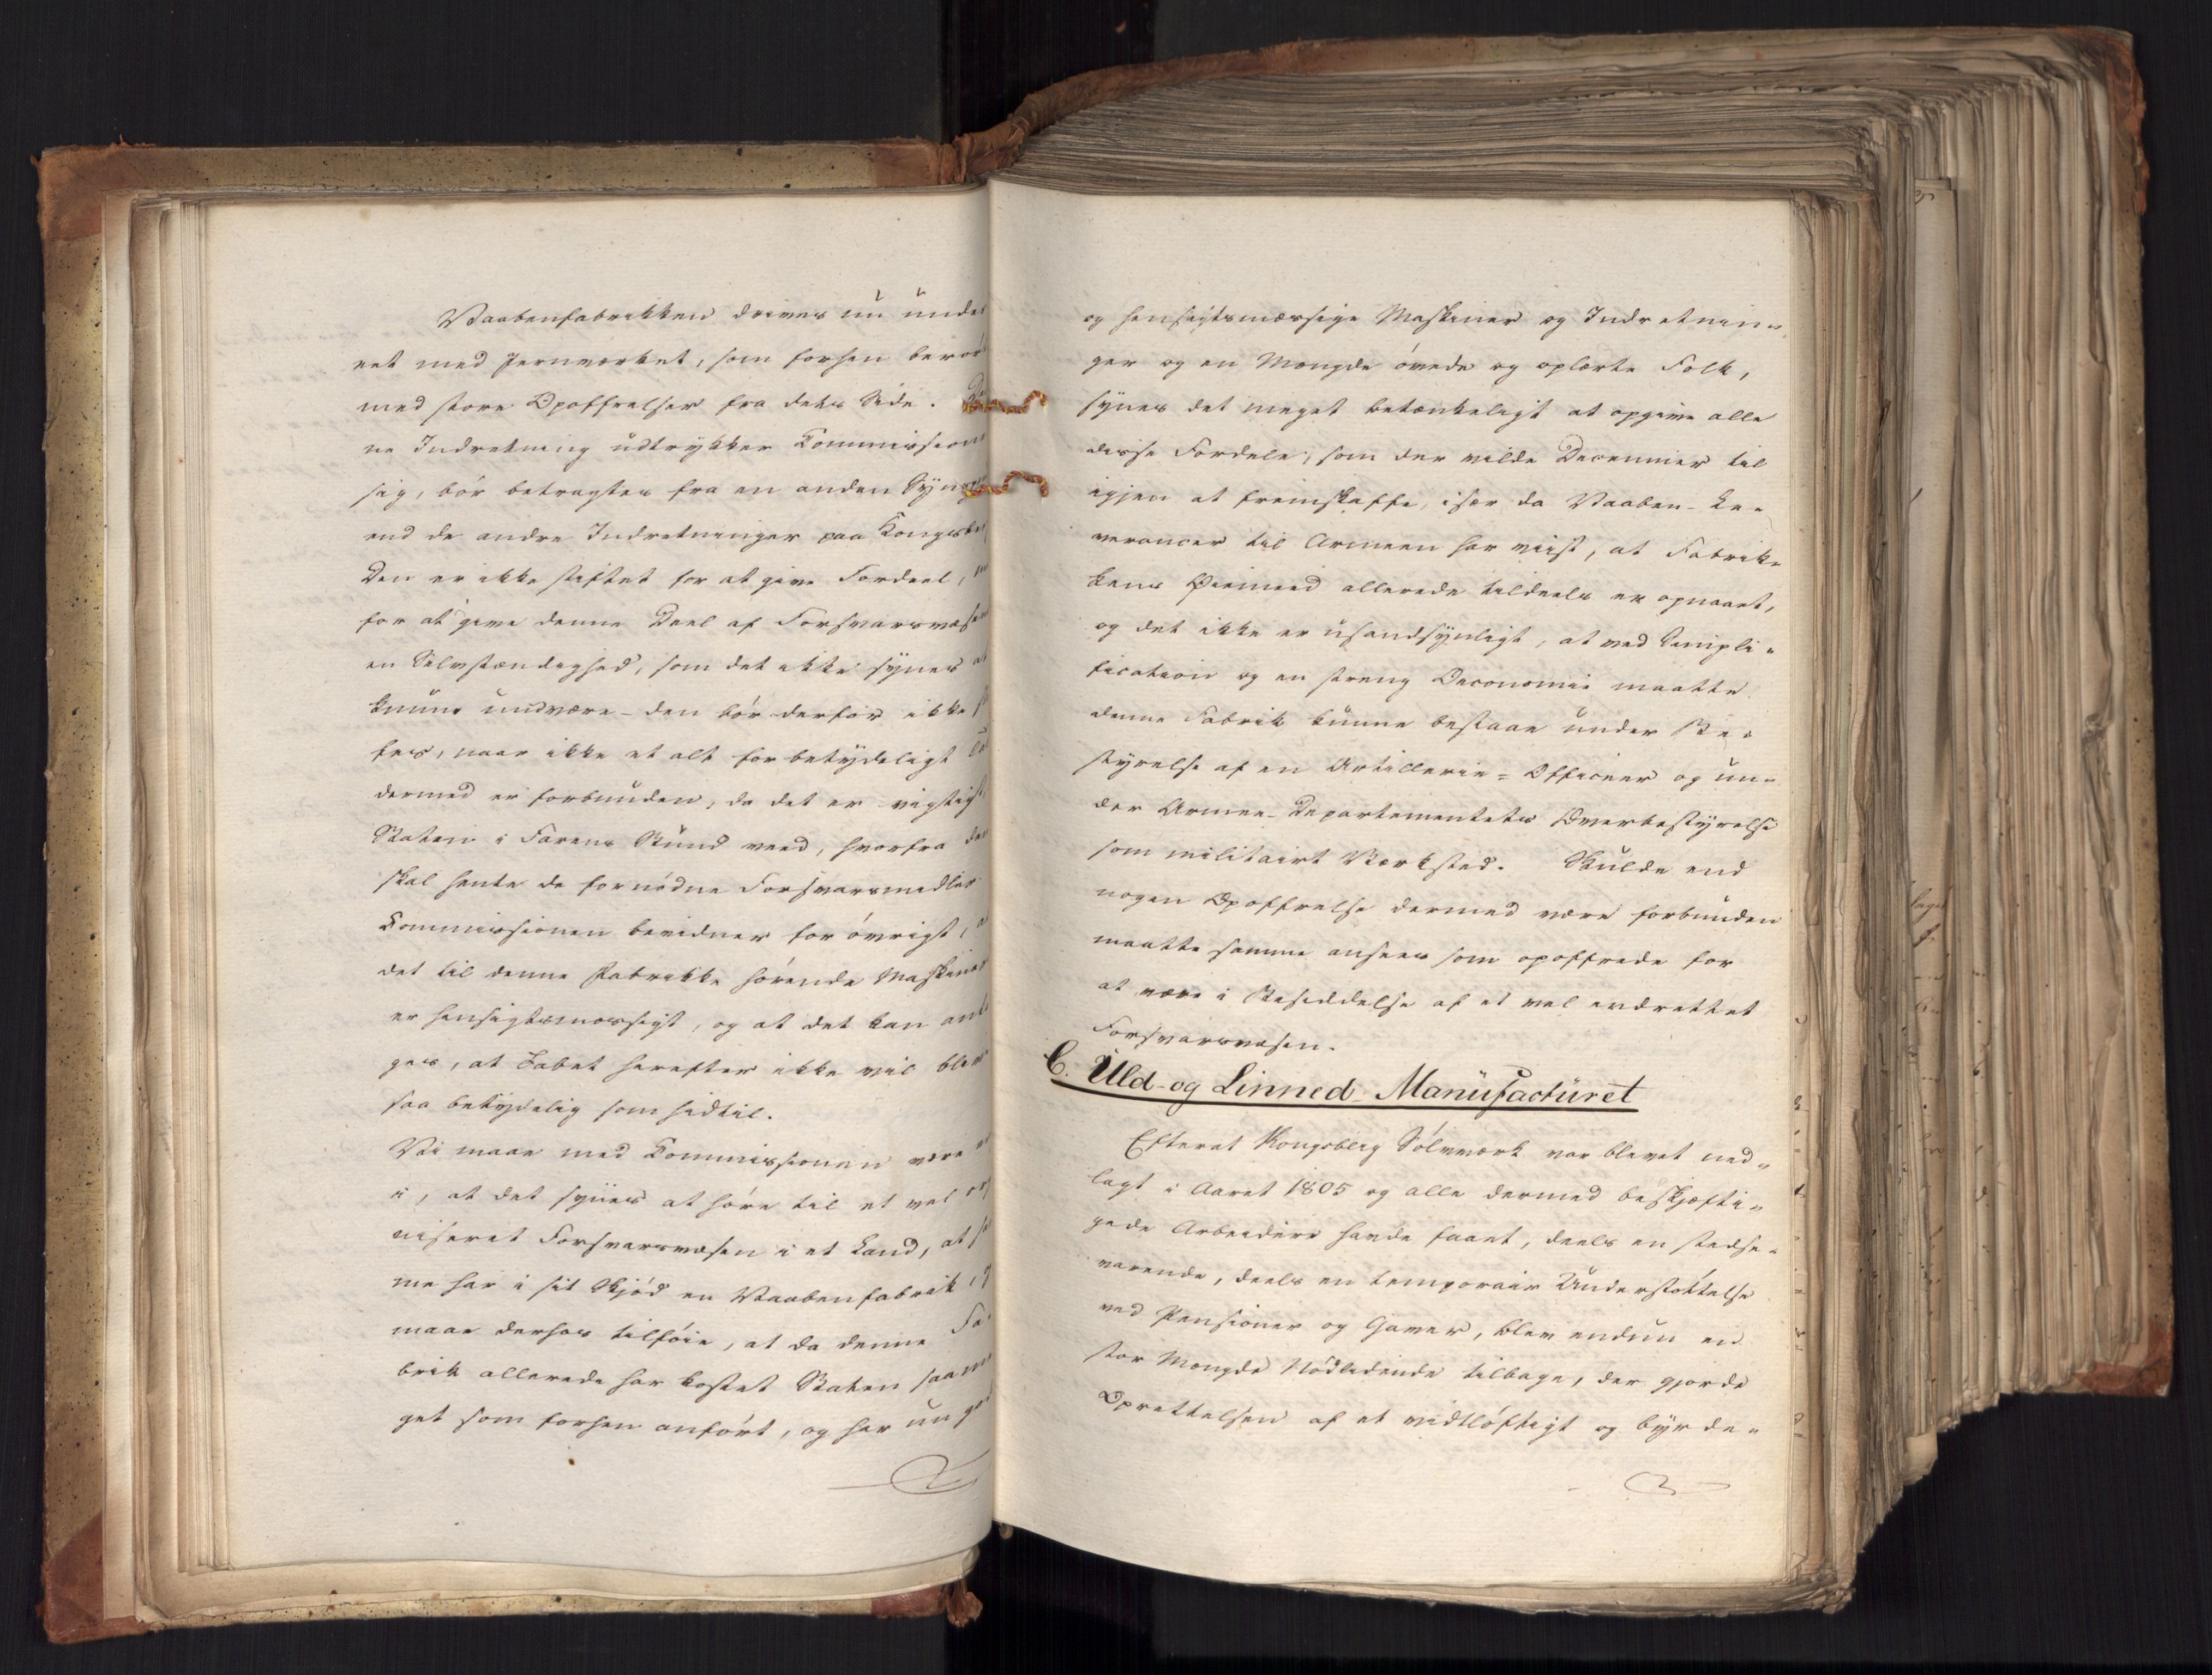 Vaabenfabrikken drives nu under
eet med Jernværket, som forhen berør
med store Opoffrelser fra dets Side. De
ne Indretning udtrykker Commission
sig, bør betragtes fra en anden Syns
end de andre Indretninger paa Kongsbe
Den er ikke stiftet for at give Fordeel, m
for at give denne Deel af Forsvarsvæsen
en Selvstændighed, som det ikke synes at
kunne undvære - den bør derfor ikke
tes, naar ikke et alt for betydeligt
dermed er forbunden, da det er vigtigt
Staten i Farens Stund veed, hvorfra den
skal hente de fornødne Forsvarsmidler
Commissionen bevidner for øvrigt, a
det til denne Fabrikke hørende Maskiner
er hensigtsmæssigt, og at det kan ant
ges, at Tabet herefter ikke vil blive
saa betydelig som hidtil.
Vi maae med Commissionen være
i, at det synes at høre til et vel or
niseret Forsvarsvæsen i et Land, at sa
me har i sit Skjød en Vaabenfabrik,
maae derhos tilføie, at da denne Fa-
brik allerede har kostet Staten saa me
get som forhen anført, og har nu go
og hensigtsmæssige Maskiner og Indretnin-
ger og en Mængde øvede og oplærte Folk,
synes det meget betænkeligt at opgive alle
disse Fordele, som der vilde Decennier til
igjen at fremskaffe, især da Vaaben-Le-
verancer til Armeen har viist, at Fabrik-
kens Øiemeed allerede tildeels er opnaaet,
og det ikke er usandsynligt, at ved Simpli-
fication og en streng Oeconomie maatte
denne Fabrik kunne bestaae under Be-
styrelse af en Artillerie-Officeer og un-
der Armee-Departementets Overbestyrelse
som militairt Værksted. Skulde end
nogen Opoffrelse dermed være forbunden
maatte samme ansees som opoffrede for
at være i Besiddelse af et vel indrettet
Forsvarsvæsen.
C. Uld- og Linned Manufacturet
Efterat Kongsberg Sølvværk var blevet ned-
lagt i Aaret 1805 og alle dermed beskjæfti-
gede Arbeidere havde faaet, deels en stedse-
varende, deels en temporair Understøttelse
ved Pensioner og Gaver, blev endnu en
stor Mængde Nødlidende tilbage, der gjorde
Oprettelsen af et vidtløftigt og byrde-